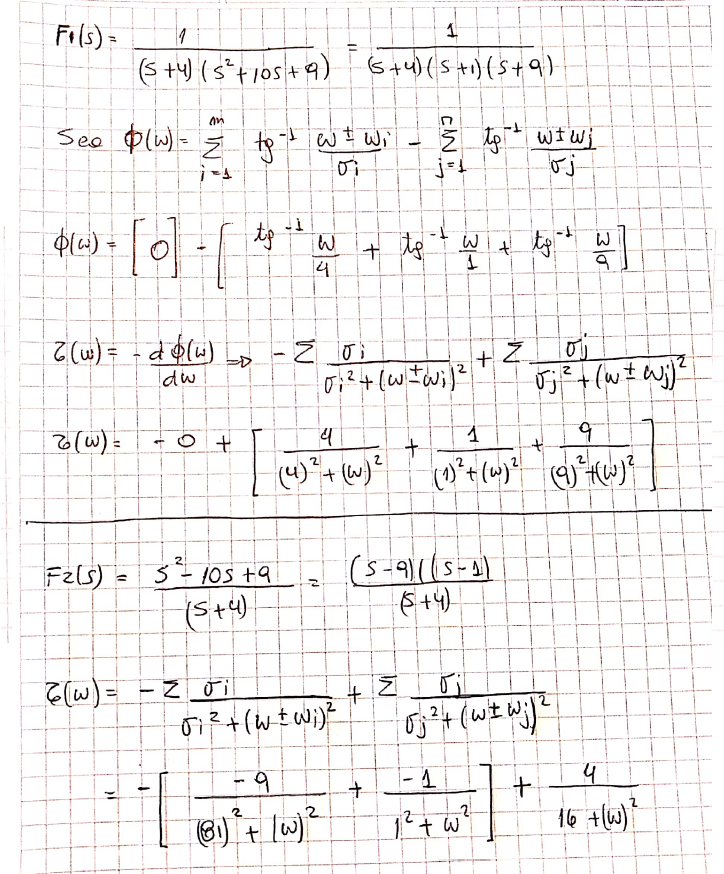 F1(s) = 1 / ((s+4)(s²+10s+9)) = 1 / ((s+4)(s+1)(s+9))
Sea ϕ(w) = Σ_{i=1}^{m} tg⁻¹ (w ± wi)/σi − Σ_{j=1}^{n} tg⁻¹ (w ± wj)/σj
ϕ(w) = [0] − [tg⁻¹ w/4 + tg⁻¹ w/1 + tg⁻¹ w/9]
τ(w) = − dϕ(w)/dw ⇒ − Σ σi / (σi² + (w ± wi)²) + Σ σj / (σj² + (w ± wj)²)
τ(w) = − 0 + [4 / ((4)² + (w)²) + 1 / ((1)² + (w)²) + 9 / ((9)² + (w)²)]
F2(s) = (s² − 10s + 9) / (s+4) = (s−9)((s−1) / (s+4)
τ(w) = − Σ σi / (σi² + (w ± wi)²) + Σ σj / (σj² + (w ± wj)²)
= − [−9 / ((81)² + (w)²) + −1 / (1² + w²)] + 4 / (16 + (w)²)